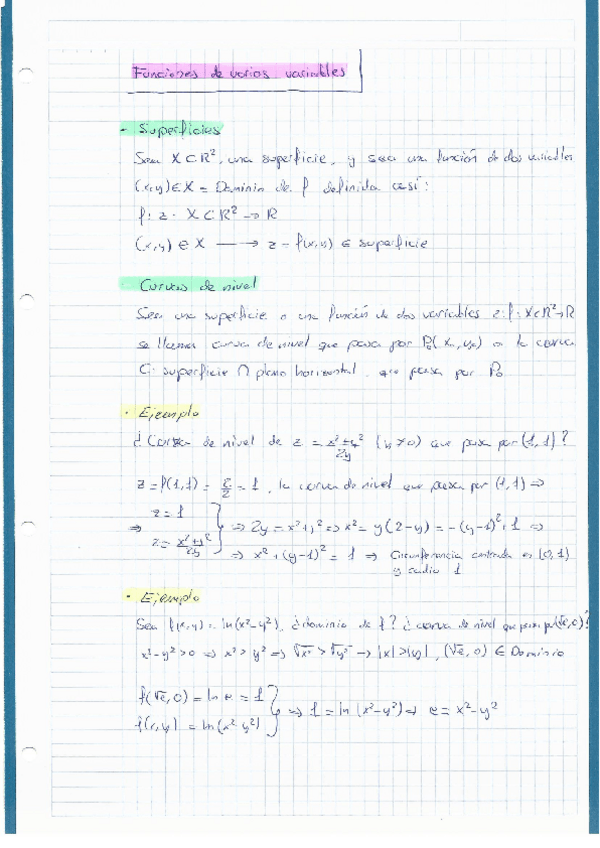 Funciones de varias variables
- Superficies
Sea X⊂R², una superficie, y sea una función de dos variables
(x,y)∈X = Dominio de f definida así:
f: z · X⊂R² → R
(x,y) ∈ X ⟶ z = f(x,y) ∈ superficie
Curvas de nivel
Sea una superficie o una función de dos variables z:f: X⊂R²→R
se llama curva de nivel que pasa por P₀(x₀,y₀) a la curva
C: superficie ∩ plano horizontal, que pasa por P₀
· Ejemplo
¿Curva de nivel de z = x²+y²/2y (y≠0) que pasa por (1,1)?
z=f(1,1) = 2/2 = 1, la curva de nivel que pasa por (1,1) ⇒
⇒ z=1 z= x²+y²/2y } ⇒ 2y = x²+y² ⇒ x² = y(2-y) = -(y-1)²+1 ⇒
⇒ x²+(y-1)² = 1 ⇒ Circunferencia centrada en (0,1)
y radio 1
· Ejemplo
Sea f(x,y) = ln(x²-y²), ¿dominio de f? ¿curva de nivel que pasa por (√e,0)?
x²-y²>0 ⇒ x²>y² ⇒ √x²>√y² → |x|>|y|, (√e,0) ∈ Dominio
f(√e,0) = ln e = 1
f(x,y) = ln(x²-y²) } ⇒ 1 = ln(x²-y²) ⇒ e = x²-y²